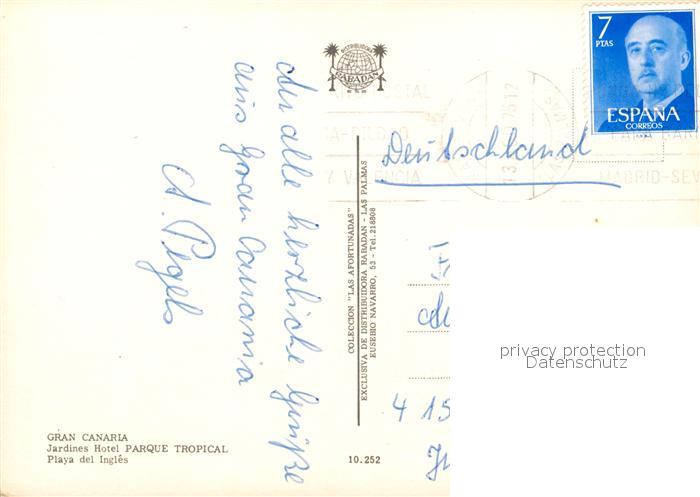 An alle herzliche Grüße
aus Gran Canaria
A. Pegels
GRAN CANARIA
Jardines Hotel PARQUE TROPICAL
Playa del Inglés
DISTRIBUIDORA
RABADAN
COLECCION "LAS AFORTUNADAS"
EXCLUSIVA DE DISTRIBUIDORA RABADAN - LAS PALMAS
EUSEBIO NAVARRO, 53 - Tel. 218808
10.252
7
PTAS
ESPAÑA
CORREOS
BILBAO
Y VALENCIA
MADRID-SEV
Deutschland
4 15
privacy protection
Datenschutz